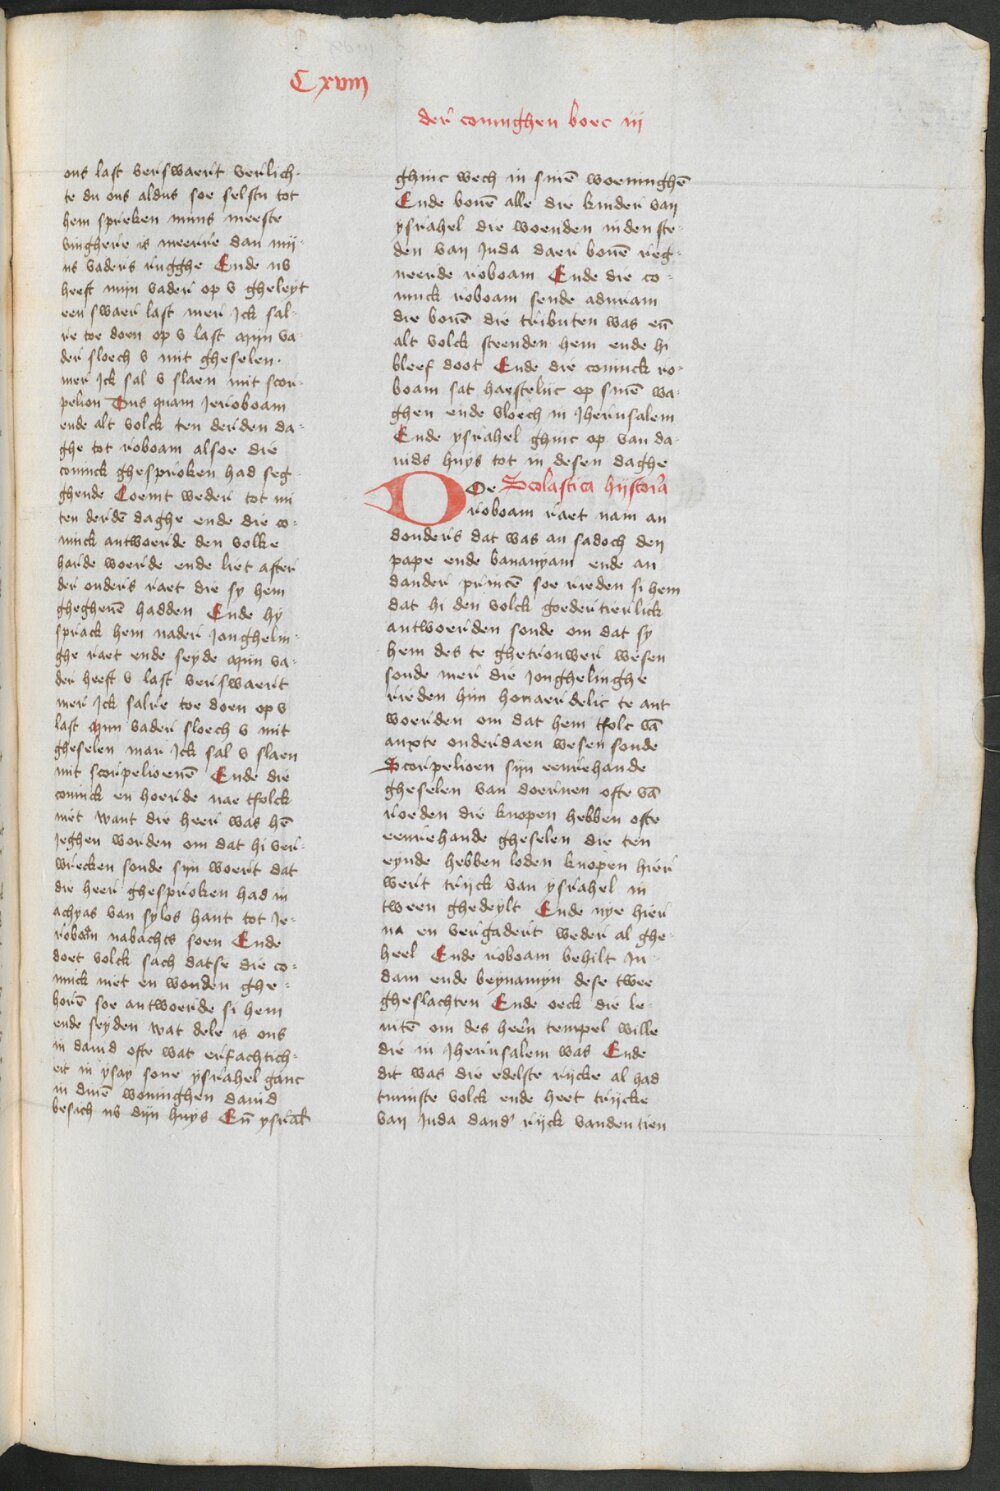 Cxviij
der coninghen boec iij
ons last verswaert verlich-
te du ons aldus soe selstu tot
hem spreken mijns meeste
vinghere is meerre dan mij-
ns vaders rugghe Ende nv
heeft mijn vader op v gheleyt
een swaer last mer Jck sal-
re toe doen op v last mijn va-
der sloech v mit gheselen.
mer Jck sal v slaen mit scor-
pelion Dus quam Jeroboam
ende alt volck ten derden da-
ghe tot roboam alsoe die
coninck ghesproken had seg-
ghende Coemt weder tot mi
ten derdē daghe ende die co-
ninck antwoerde den volke
harde woerde ende liet after
der ouders raet die sy hem
ghegheuē hadden Ende hy
sprack hem nader Jonghelin-
ghe raet ende seyde mijn va-
der heeft v last verswaert
mer Jck salre toe doen op v
last mijn vader sloech v mit
gheselen mar Jck sal v slaen
mit scorpelioenē Ende die
coninck en hoerde nae tfolck
niet want die heer was hē
Jeghen worden om dat hi ver-
wrecken soude sijn woert dat
die heer ghesproken had in
achyas van sylos hant tot Je-
roboām nabachts soen Ende
doet volck sach datse die co-
ninck niet en wouden ghe-
horē soe antwoerde si hem
ende seyden wat dele is ons
in dauid ofte wat erfachtich-
eit in ysay sone ysrahel ganc
in dinē woninghen dauid
besach nv dijn huys Eñ ysrah̄l
ghinc wech in sinē woeninghē
Ende bouē alle die kinder van
ysrahel die woenden inden ste-
den van Juda daer bouē reg-
neerde roboam Ende die co-
ninck roboam sende aduram
die bouē die tributen was eñ
alt volck steenden hem ende hi
bleef doot Ende die coninck ro-
boam sat haestelinc op sinē wa-
ghen ende vloech in Jherusalem
Ende ysrahel ghinc op van da-
uids huys tot in desen daghe
DOe Scolastica hystoria
roboam raet nam an
donders dat was an sadoch den
pape ende bananyam ende an
dander princē soe rieden si hem
dat hi den volck goedertierlick
antwoerden soude om dat sy
hem des te ghetrouwer wesen
soude mer die Jonghelinghe
rieden him houaerdelic te ant
woerden om dat hem tfolc vā
anxte onderdaen wesen soude
Scorpelioen sijn eenrehande
gheselen van doernen ofte vā
roeden die knopen hebben ofte
eenrehande gheselen die ten
eynde hebben loden knopen hier
wert trijck van ysrahel in
tween ghedeylt Ende nye hier
na en vergadert weder al ghe-
heel Ende roboam behilt Ju-
dam ende beynamyn dese twee
gheslachten Ende oeck die le-
uitē om des heēn tempel wille
die in Jherusalem was Ende
dit was die edelste rijcke al had
tminste volck ende heet trijcke
van Juda dand' rijck vanden tien